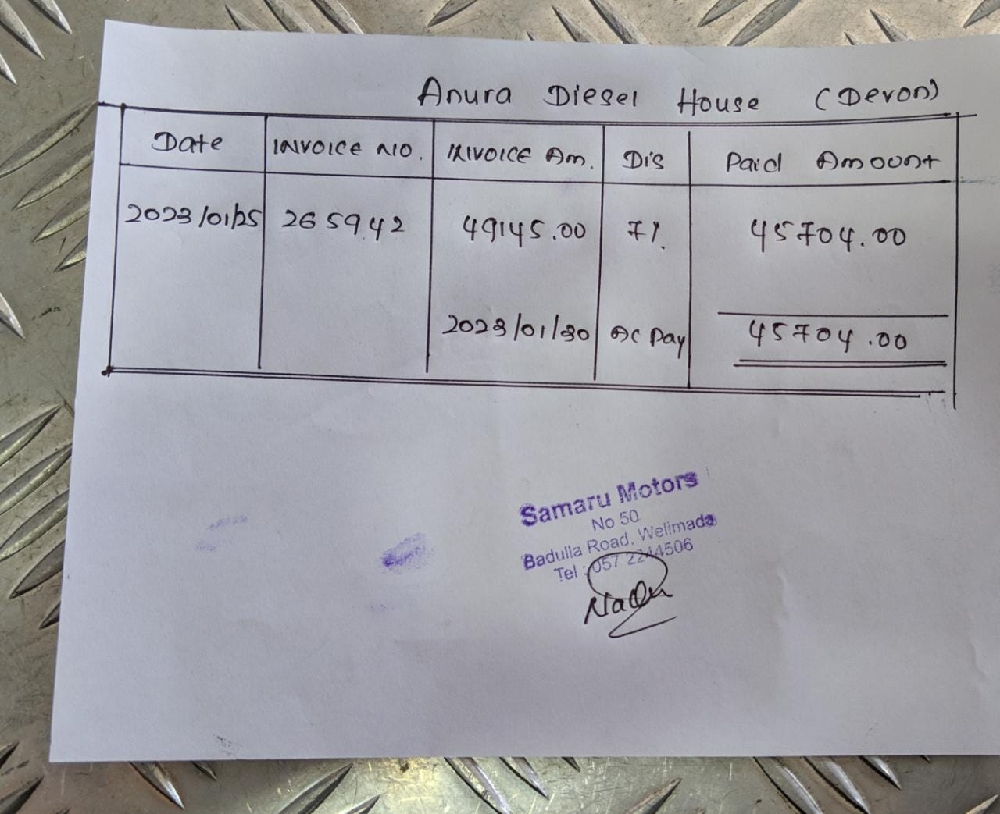 Anura Diesel House (Devon)
Date INVOICE NO. INVOICE Am. Dis Paid Amount
2023/01/25 265942 49145.00 7% 45704.00
2023/01/30 AC Pay 45704.00
Samaru Motors
No 50
Badulla Road, Welimada
Tel : 057 2244506